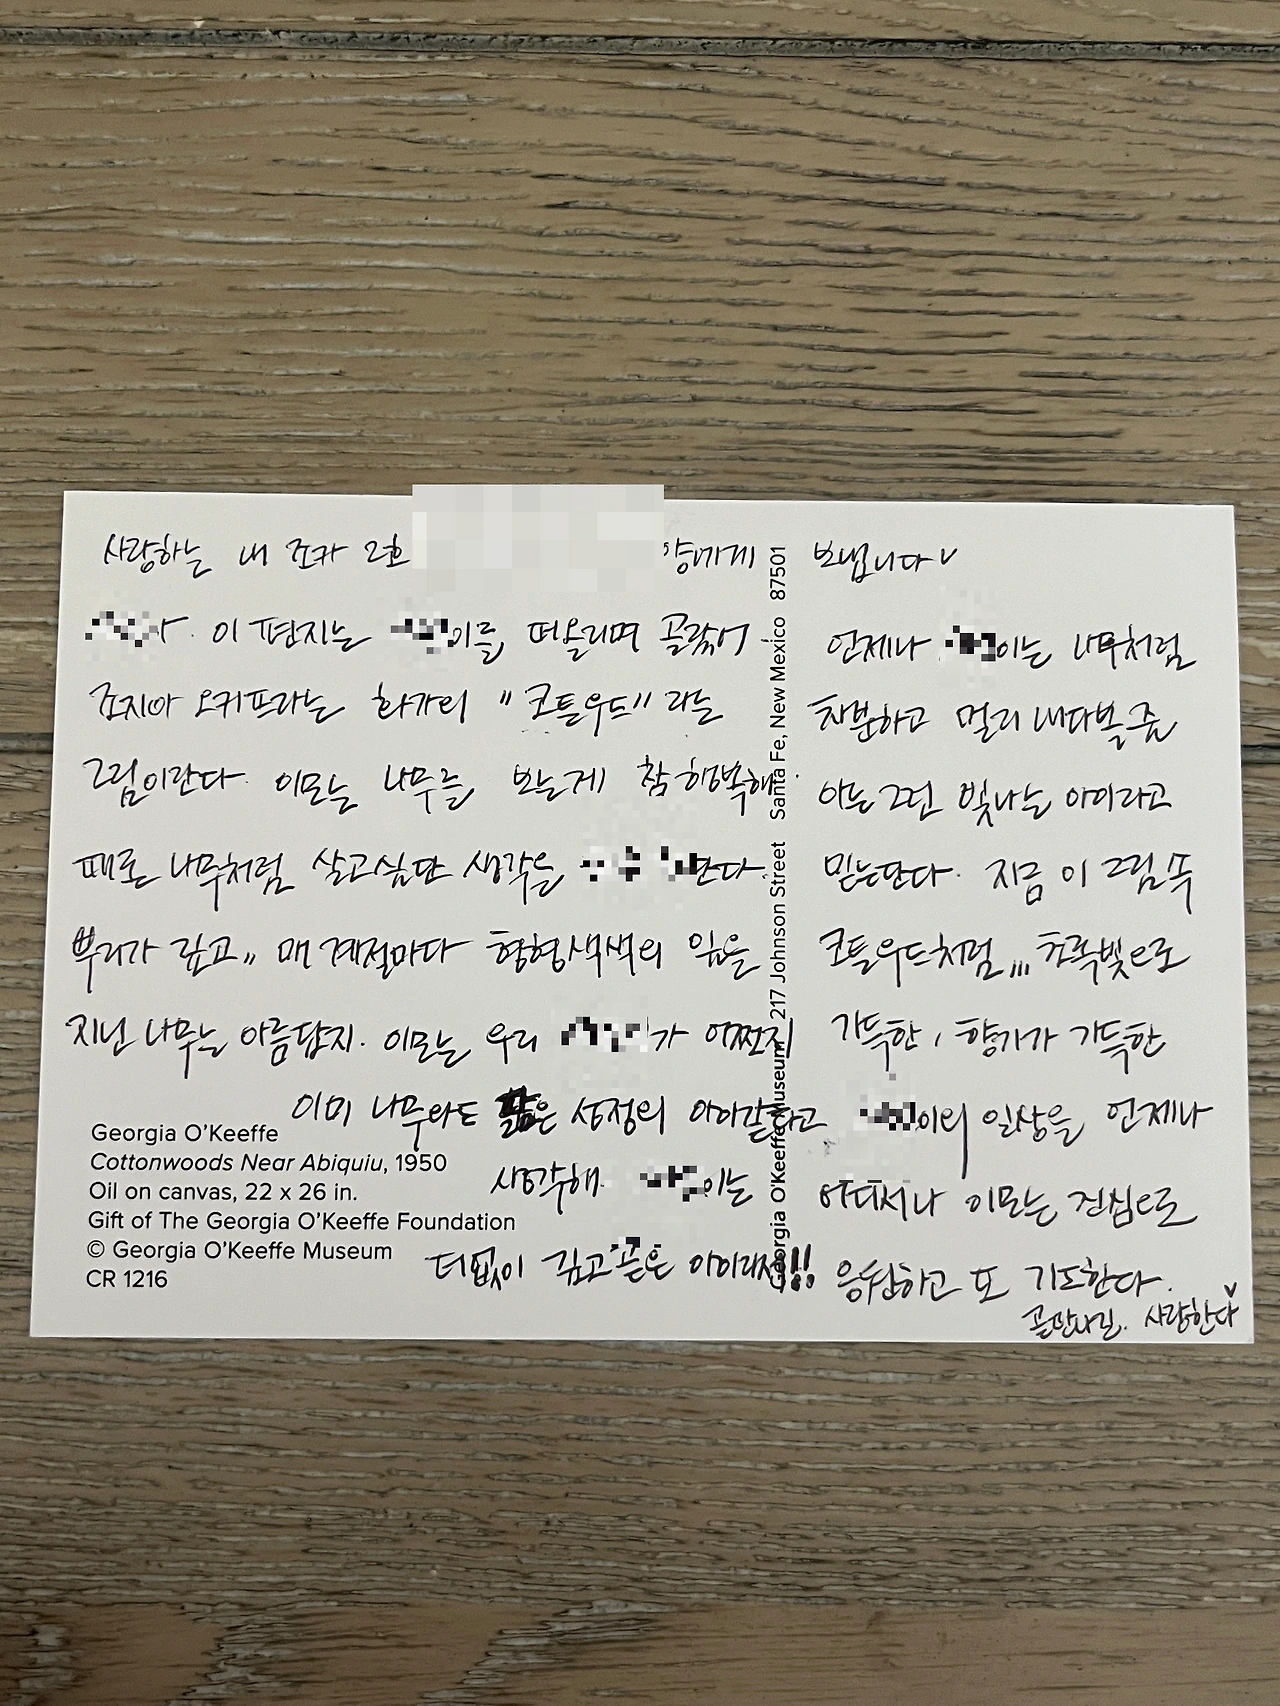 사랑하는 내 조카 2호 양에게 보냅니다
이 편지는 이를 떠올리며 골랐어
조지아 오키프라는 화가의 "코튼우드" 라는
그림이란다. 이모는 나무를 보는게 참 행복해.
때로 나무처럼 살고싶단 생각을 단다.
뿌리가 깊고,, 매 계절마다 형형색색의 잎을
지닌 나무는 아름답지. 이모는 우리 가 어쩐지
이미 나무와도 닮은 성정의 아이같다고
생각해. 이는
더없이 깊고 곧은 아이라지!!
언제나 이는 나무처럼
차분하고 멀리 내다볼 줄
아는 그런 빛나는 아이라고
믿는단다. 지금 이 그림 속
코튼우드처럼,,, 초록빛으로
가득한, 향기가 가득한
이의 일상을 언제나
어디서나 이모는 진심으로
응원하고 또 기도한다.
곧 만나길. 사랑한다
Georgia O'Keeffe
Cottonwoods Near Abiquiu, 1950
Oil on canvas, 22 x 26 in.
Gift of The Georgia O'Keeffe Foundation
© Georgia O'Keeffe Museum
CR 1216
Georgia O'Keeffe Museum 217 Johnson Street Santa Fe, New Mexico 87501